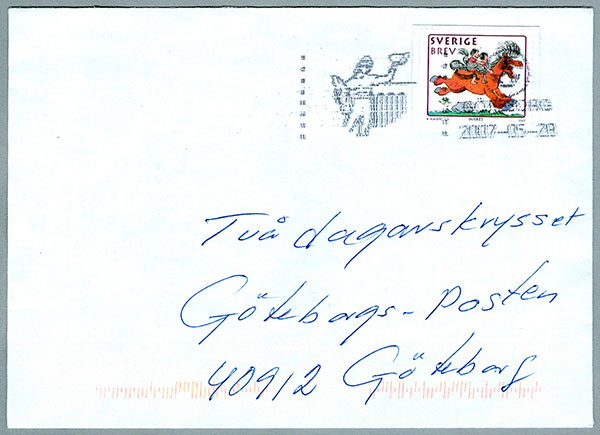 SVERIGE
BREV
2007-05-28
Två dagarskrysset
Göteborgs-Posten
40912 Göteborg